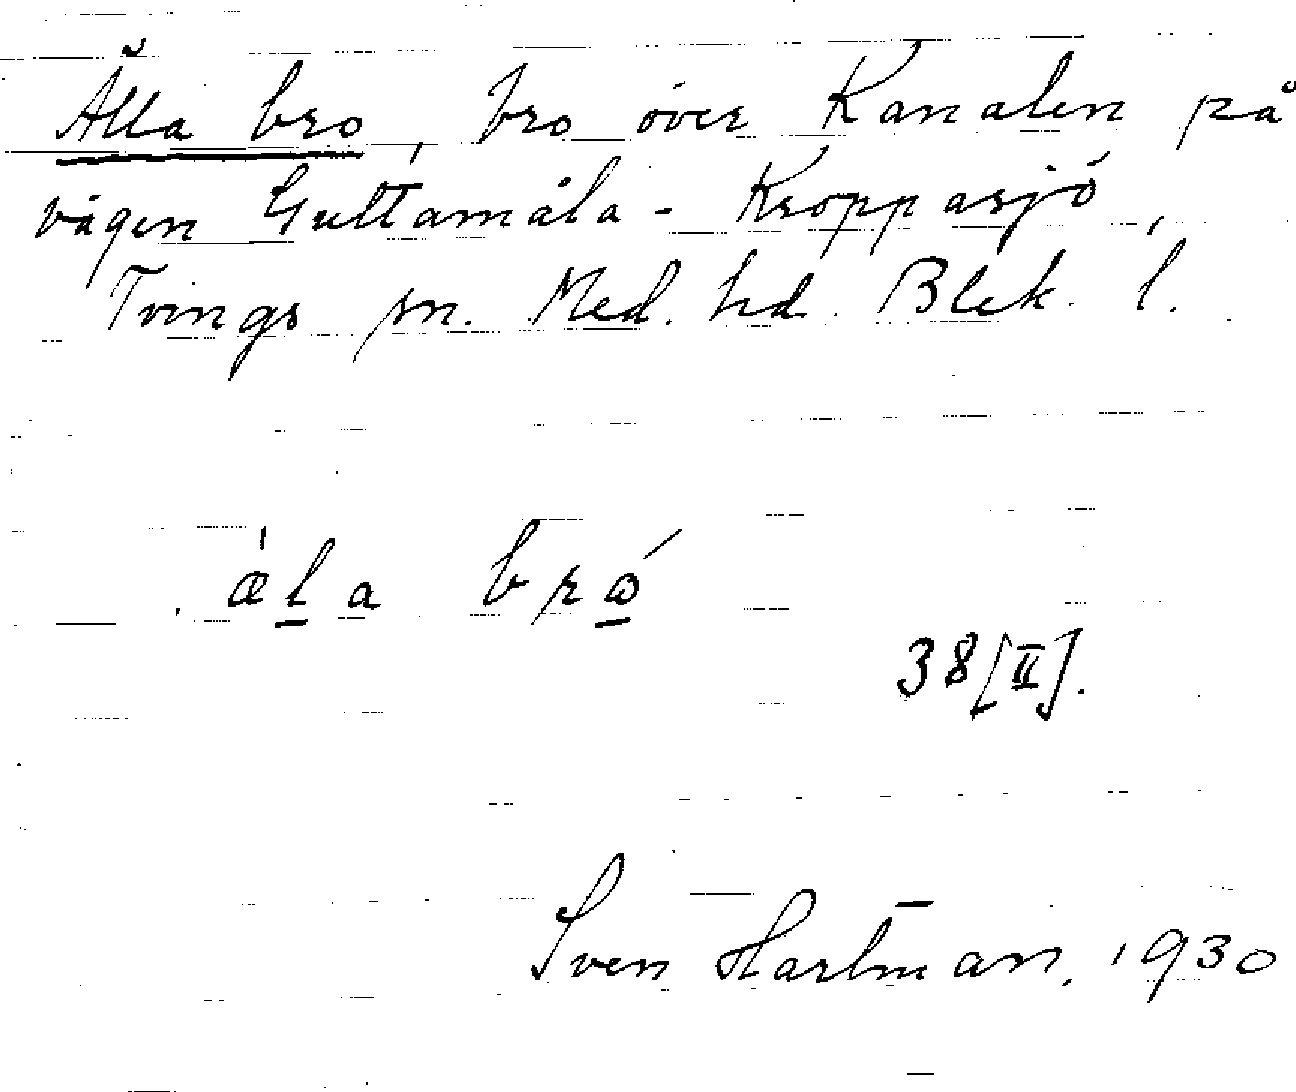 Älla bro, bro över Kanalen på
vägen Guttamåla - Kroppasjö,
Tvings sn. Med. hd. Blek. l.
æ̍l̲a brώ̲
38[II].
Sven Hartman, 1930